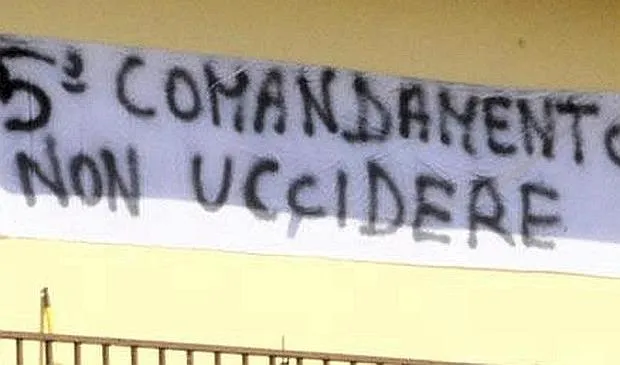 5° COMANDAMENTO
NON UCCIDERE